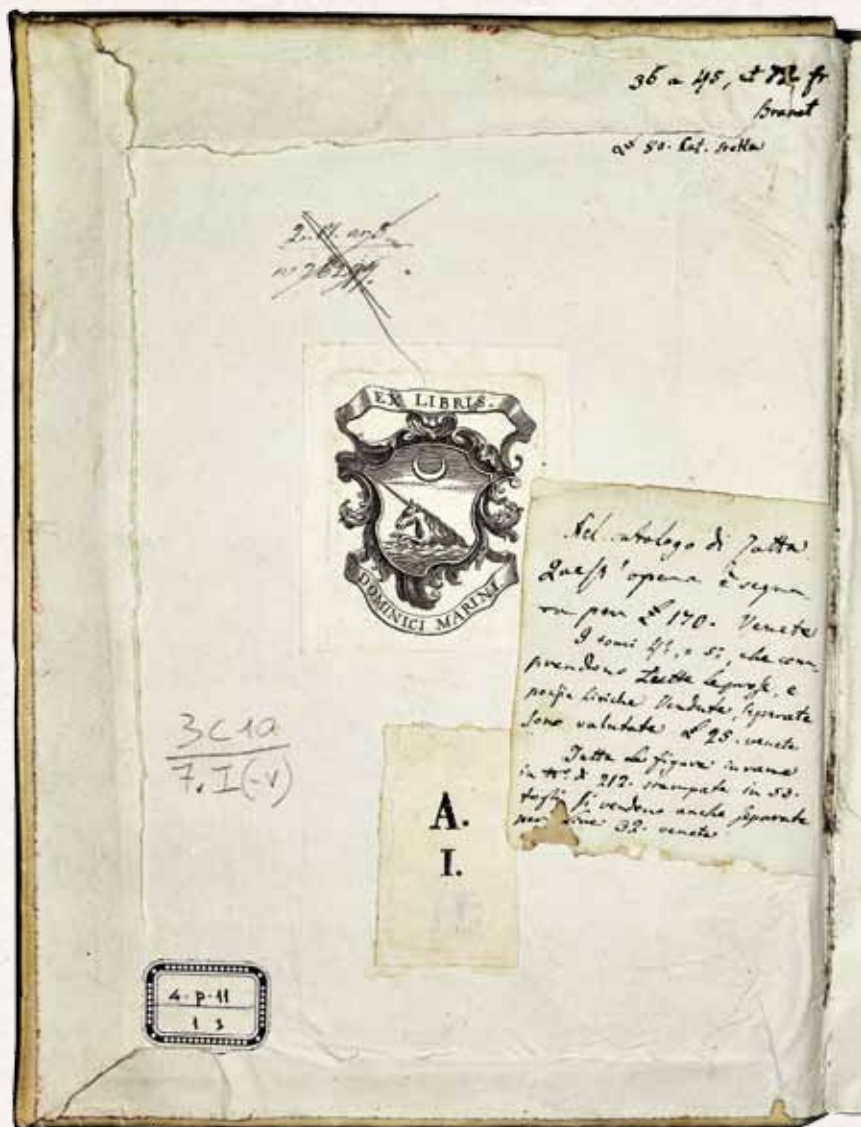 36 a 45, et 72 fr
Brunet
80. Cat.
EX LIBRIS.
DOMINICI MARINI
Nel catalogo di Zatta
Quest' opera è segna
ta per £ 170. Venete
I tomi 4º, e 5º, che com-
prendono le prose, e
poesie liriche Vendute, separate
sono valutate £ 25. venete
Tutte le figure in rame
in Nº di 212. stampate in 53.
fogli si vendono anche separate
per lire 32. venete
3C10
7.I(-V)
A.
I.
4-p-11
1 3